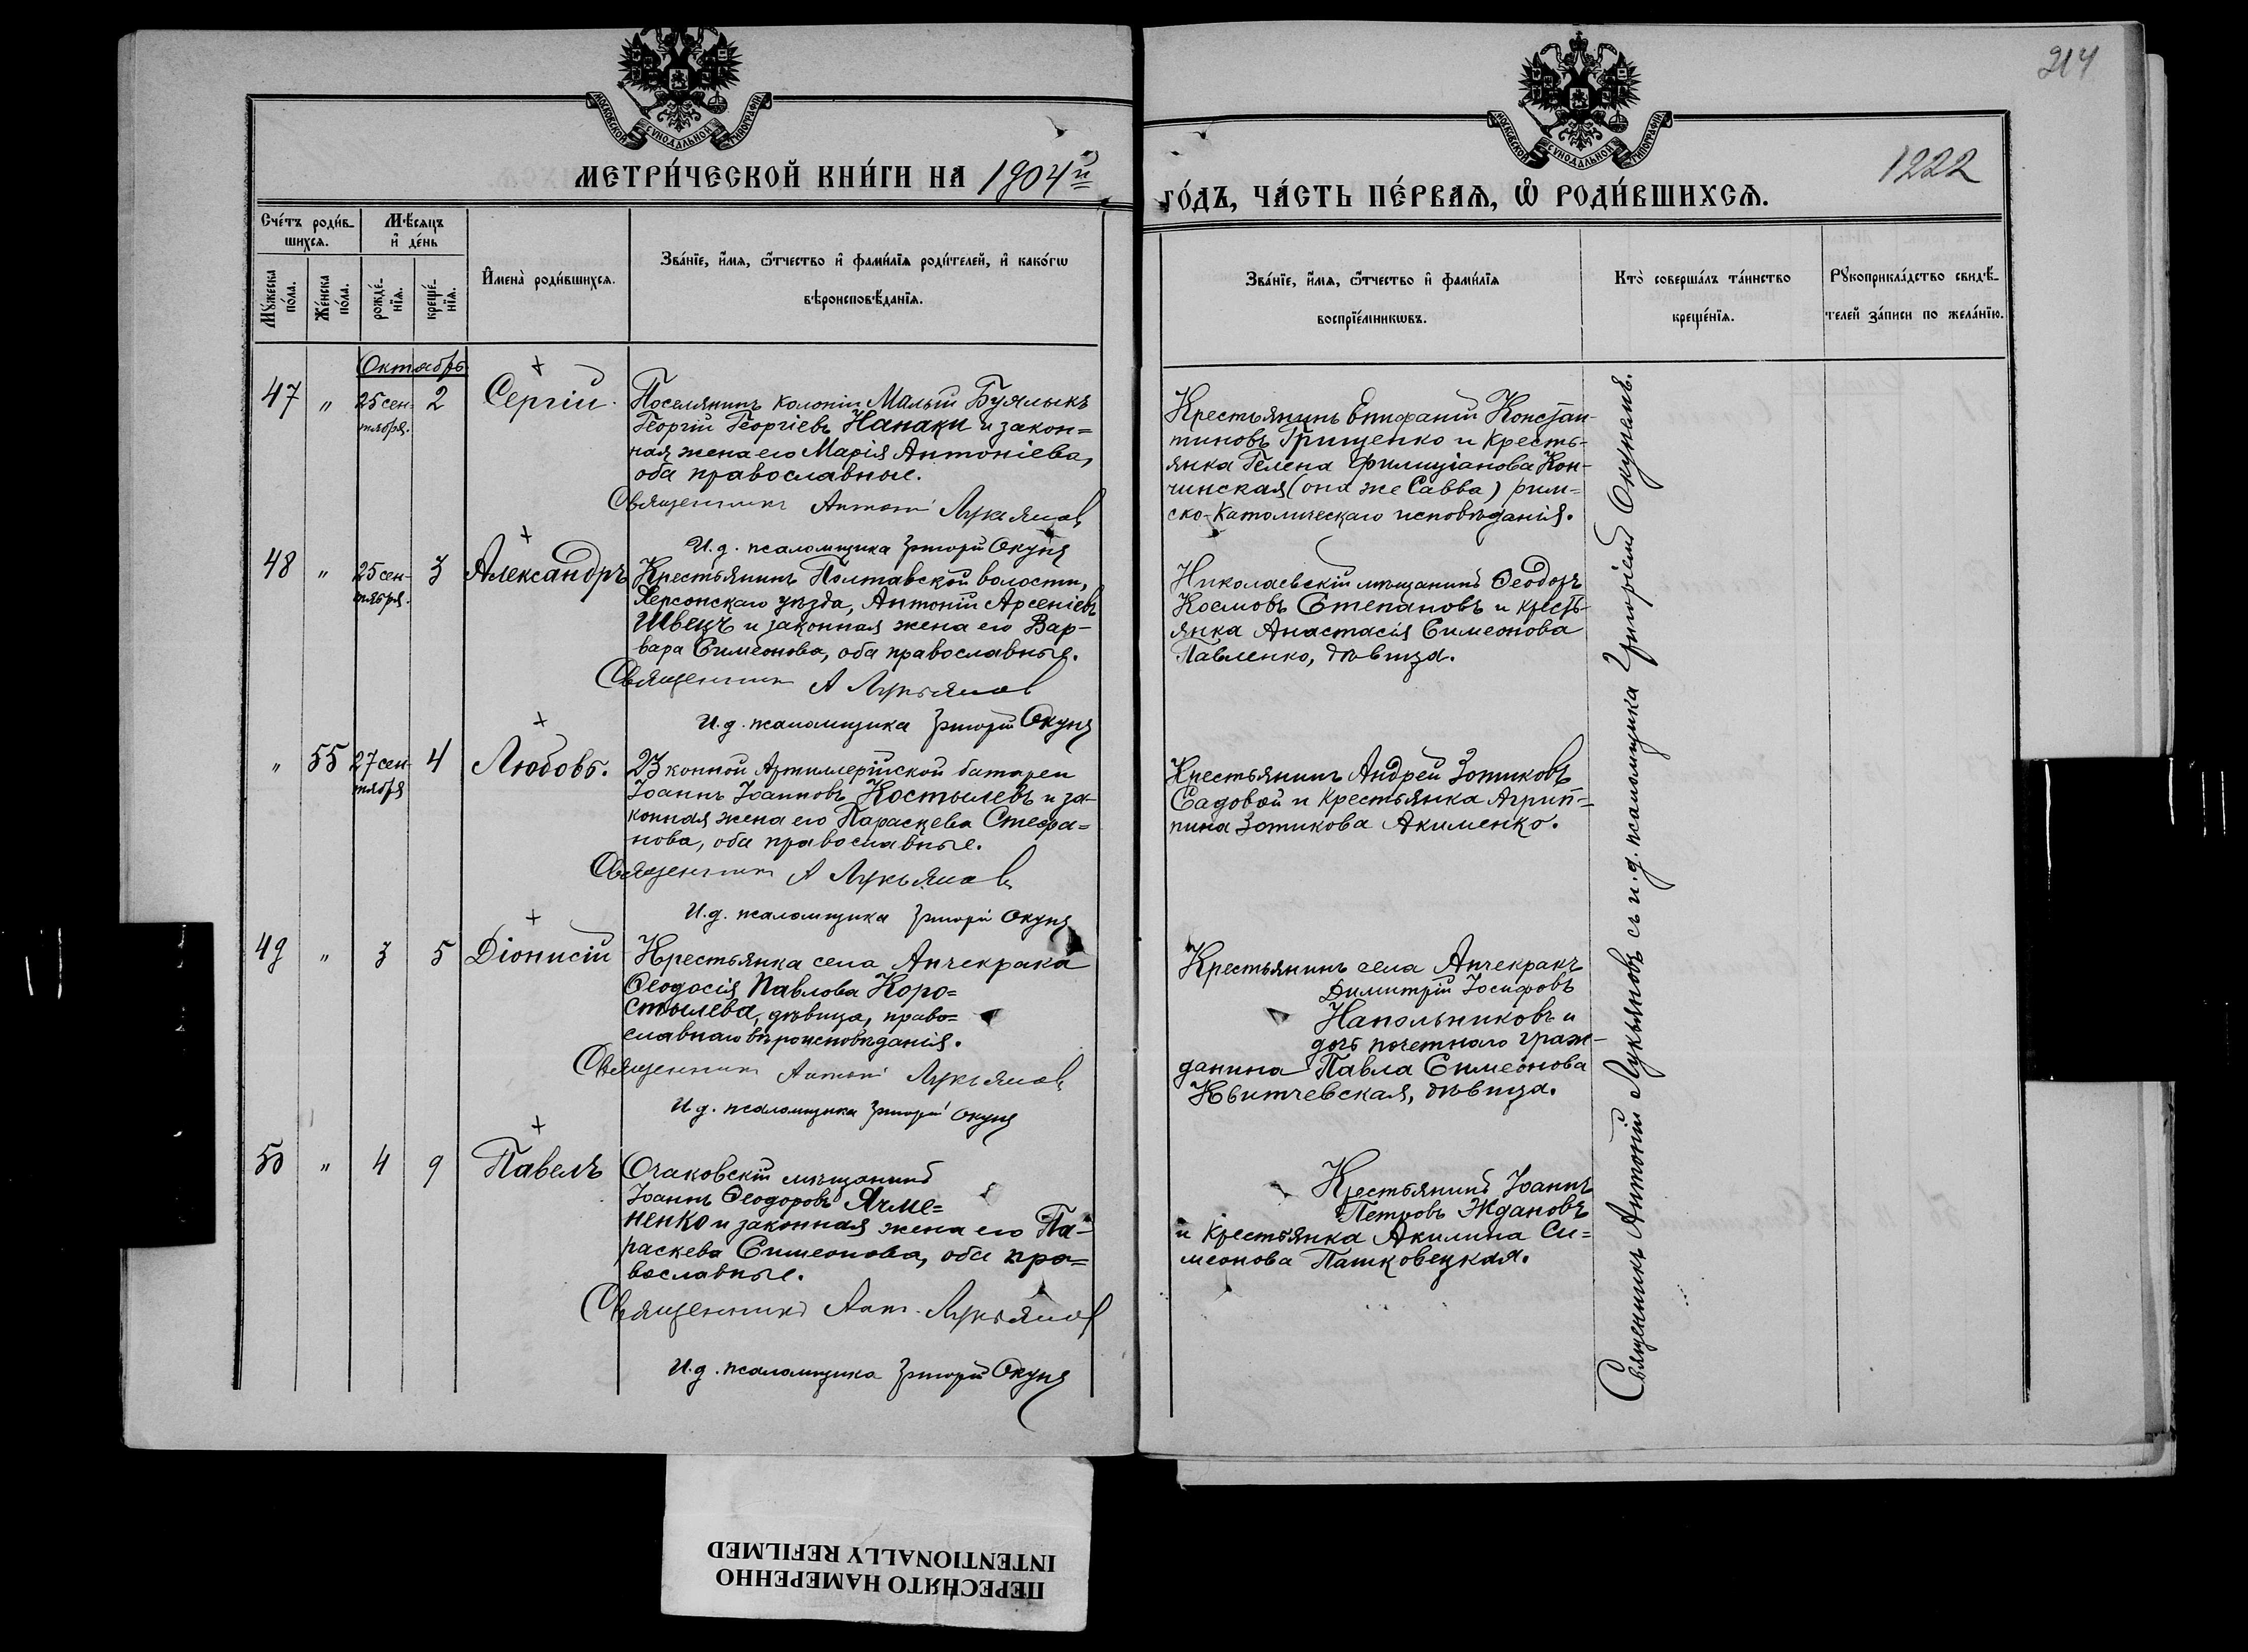 214
1222
МОСКОВСКОЙ СѴНОДАЛЬНОЙ ТИПОГРАФІИ
МЕТРИ́ЧЕСКОЙ КНИ́ГИ НА 1904й
МОСКОВСКОЙ СѴНОДАЛЬНОЙ ТИПОГРАФІИ
ГО́ДЪ, ЧА́СТЬ ПЕ́РВАѦ, Ѡ РОДИ́ВШИХСѦ.
Сче́тъ роди́в-
шихсѧ.
Мѣ́сѧцъ
и҆ де́нь
Мꙋ́жеска
по́ла.
Же́нска
по́ла.
рожде́-
нїѧ.
креще́-
нїѧ.
И҆мена̀ роди́вшихсѧ.
Зва́нїе, и҆́мѧ, ѻ҆́тчество и҆ фами́лїѧ роди́телей, и҆ како́гѡ
вѣроисповѣ́данїѧ.
Зва́нїе, и҆́мѧ, ѻ҆́тчество и҆ фами́лїѧ
воспрїе́мникѡвъ.
Кто̀ соверша́лъ та́инство
креще́нїѧ.
Рꙋкоприкла́дство свидѣ́-
телей за́писи по жела́нїю.
Октябрь
47 " 25 сен-
тября. 2 Сергій.
Поселянинъ колоніи Малый Буялыкъ
Георгій Георгіевъ Нанаки и закон=
ная жена его Марія Антоніева,
оба православные.
Священникъ Антоній Лукьянов
И.д. псаломщика Григорій Окунь
Крестьянинъ Епифаній Констан-
тиновъ Грищенко и кресть-
янка Гелена Филиціанова Кон-
чинская (она же Савва) рим=
ско-католическаго исповѣданія.
48 " 25 сен-
тября. 3 Александръ
Крестьянинъ Полтавской волости,
Херсонскаго уѣзда, Антоній Арсеніевъ
Швецъ и законная жена его Вар-
вара Симеонова, оба православные.
Священник А Лукьянов
И.д. псаломщика Григорій Окунь
Николаевскій мѣщанинъ Ѳеодоръ
Космовъ Степановъ и кресть-
янка Анастасія Симеонова
Павленко, дѣвица.
" 55 27 сен-
тября 4 Любовь.
23 конной Артиллерійской батареи
Іоаннъ Іоанновъ Костылевъ и за-
конная жена его Параскева Стефа=
нова, оба православные.
Священник А Лукьянов
И.д. псаломщика Григорій Окунь
Крестьянинъ Андрей Зотиковъ
Садовой и крестьянка Агрип=
пина Зотикова Акименко.
49 " 3 5 Діонисій
Крестьянка села Анчекрака
Ѳеодосія Павлова Коро=
стылева, дѣвица, право=
славнаго вѣроисповѣданія.
Священник Антоній Лукьянов
И.д. псаломщика Григорій Окунь
Крестьянинъ села Анчекракъ
Димитрій Іосифовъ
Напольниковъ и
дочь почетнаго граж-
данина Павла Симеонова
Квитчевская, дѣвица.
50 " 4 9 Павелъ
Очаковскій мѣщанинъ
Іоаннъ Ѳеодоровъ Ячме=
ненко и законная жена его Па-
раскева Симеонова, оба пра=
вославные.
Священникъ Ант. Лукьянов
И.д. псаломщика Григорій Окунь
Крестьянинъ Іоаннъ
Петровъ Ждановъ
и крестьянка Акилина Си=
меонова Пашковецкая.
Священникъ Антоній Лукьяновъ съ и.д. псаломщика Григоріемъ Окунемъ.
ПЕРЕСНЯТО НАМЕРЕННО
INTENTIONALLY REFILMED